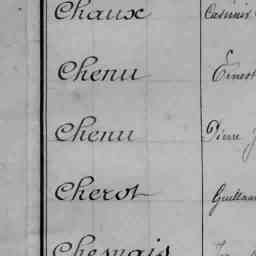 Chaux Casimir
Chenu Ernest
Chenu Pierre J
Cherot Guillaum
Chesnais